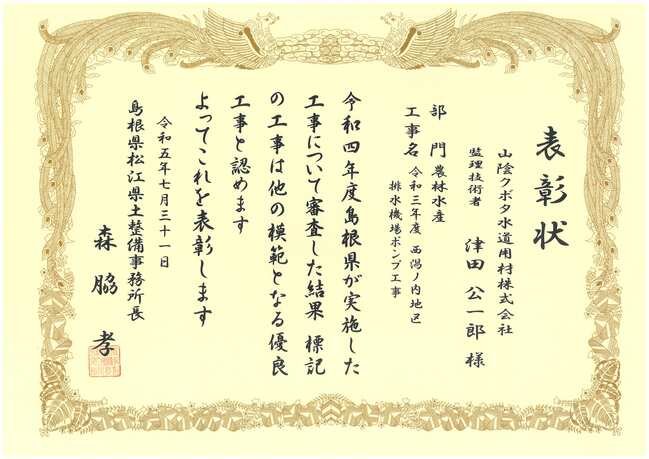 表彰状
山陰クボタ水道用材株式会社
監理技術者 津田 公一郎 様
部門 農林水産
工事名 令和三年度 西潟ノ内地区
排水機場ポンプ工事
令和四年度島根県が実施した
工事について審査した結果 標記
の工事は他の模範となる優良
工事と認めます
よってこれを表彰します
令和五年七月三十一日
島根県松江県土整備事務所長
森脇 孝